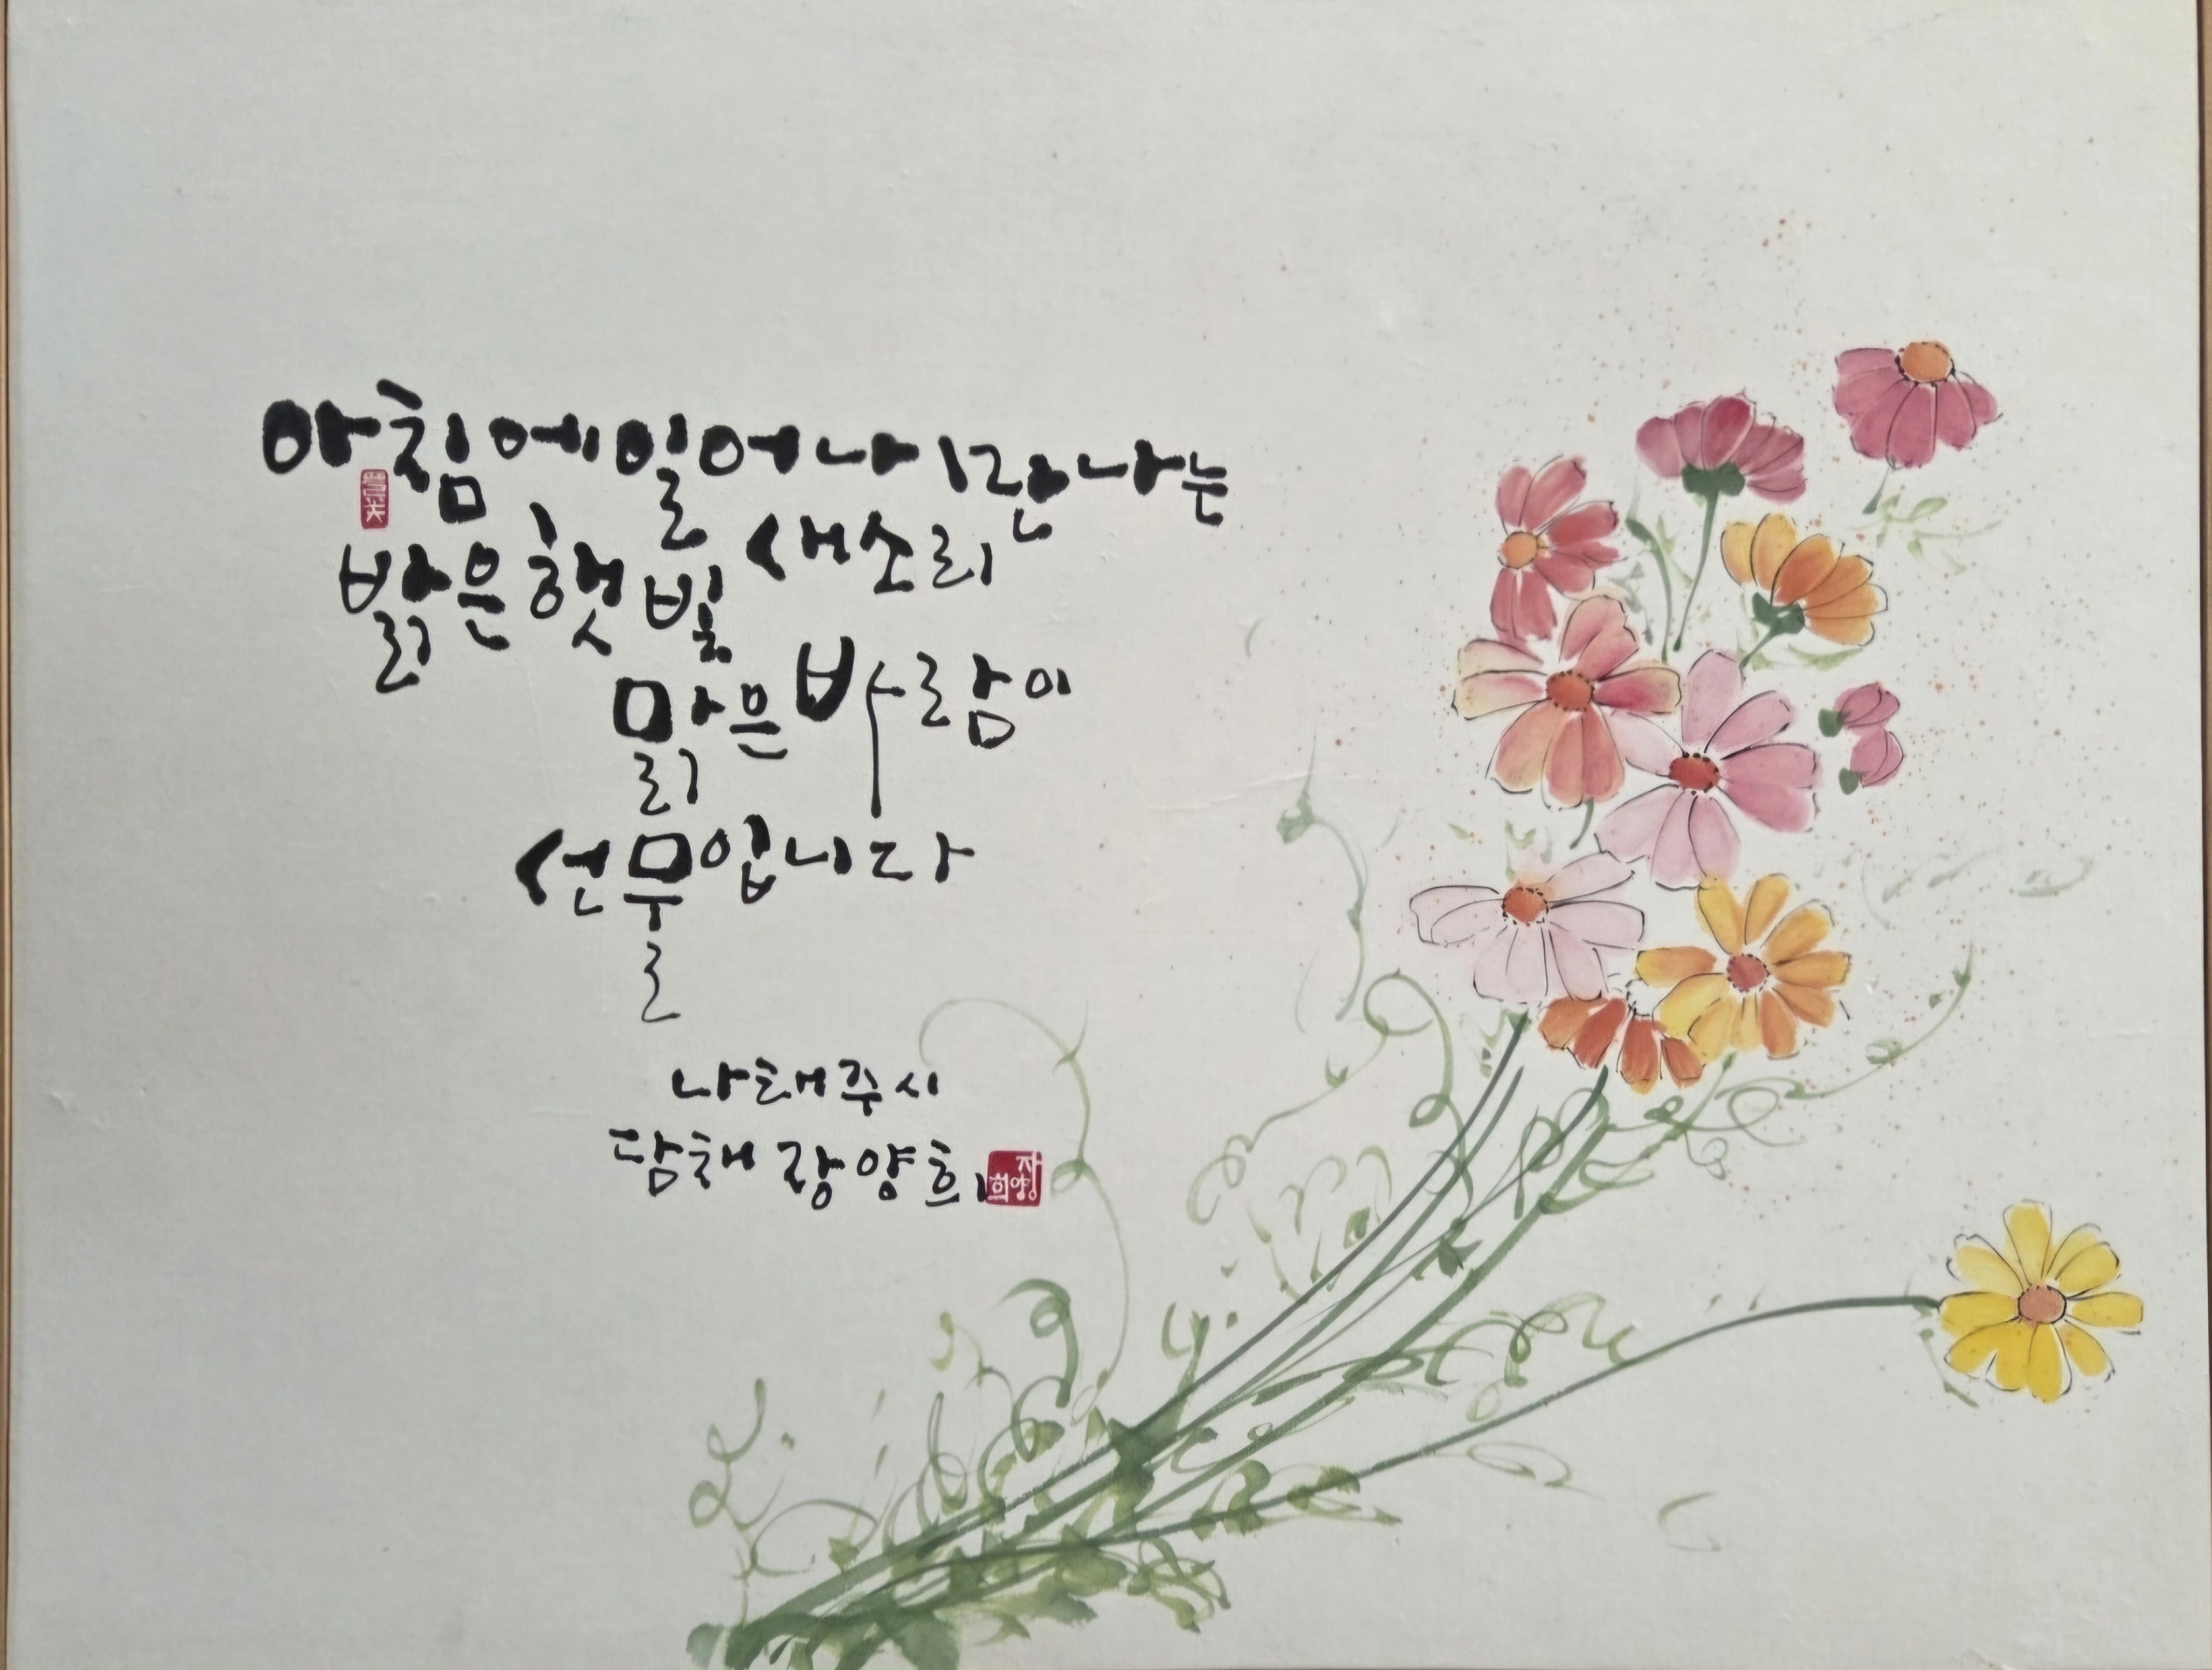 아침에 일어나 만나는
밝은 햇빛 새소리
맑은 바람이
선물입니다
나태주 시
담채 장양희